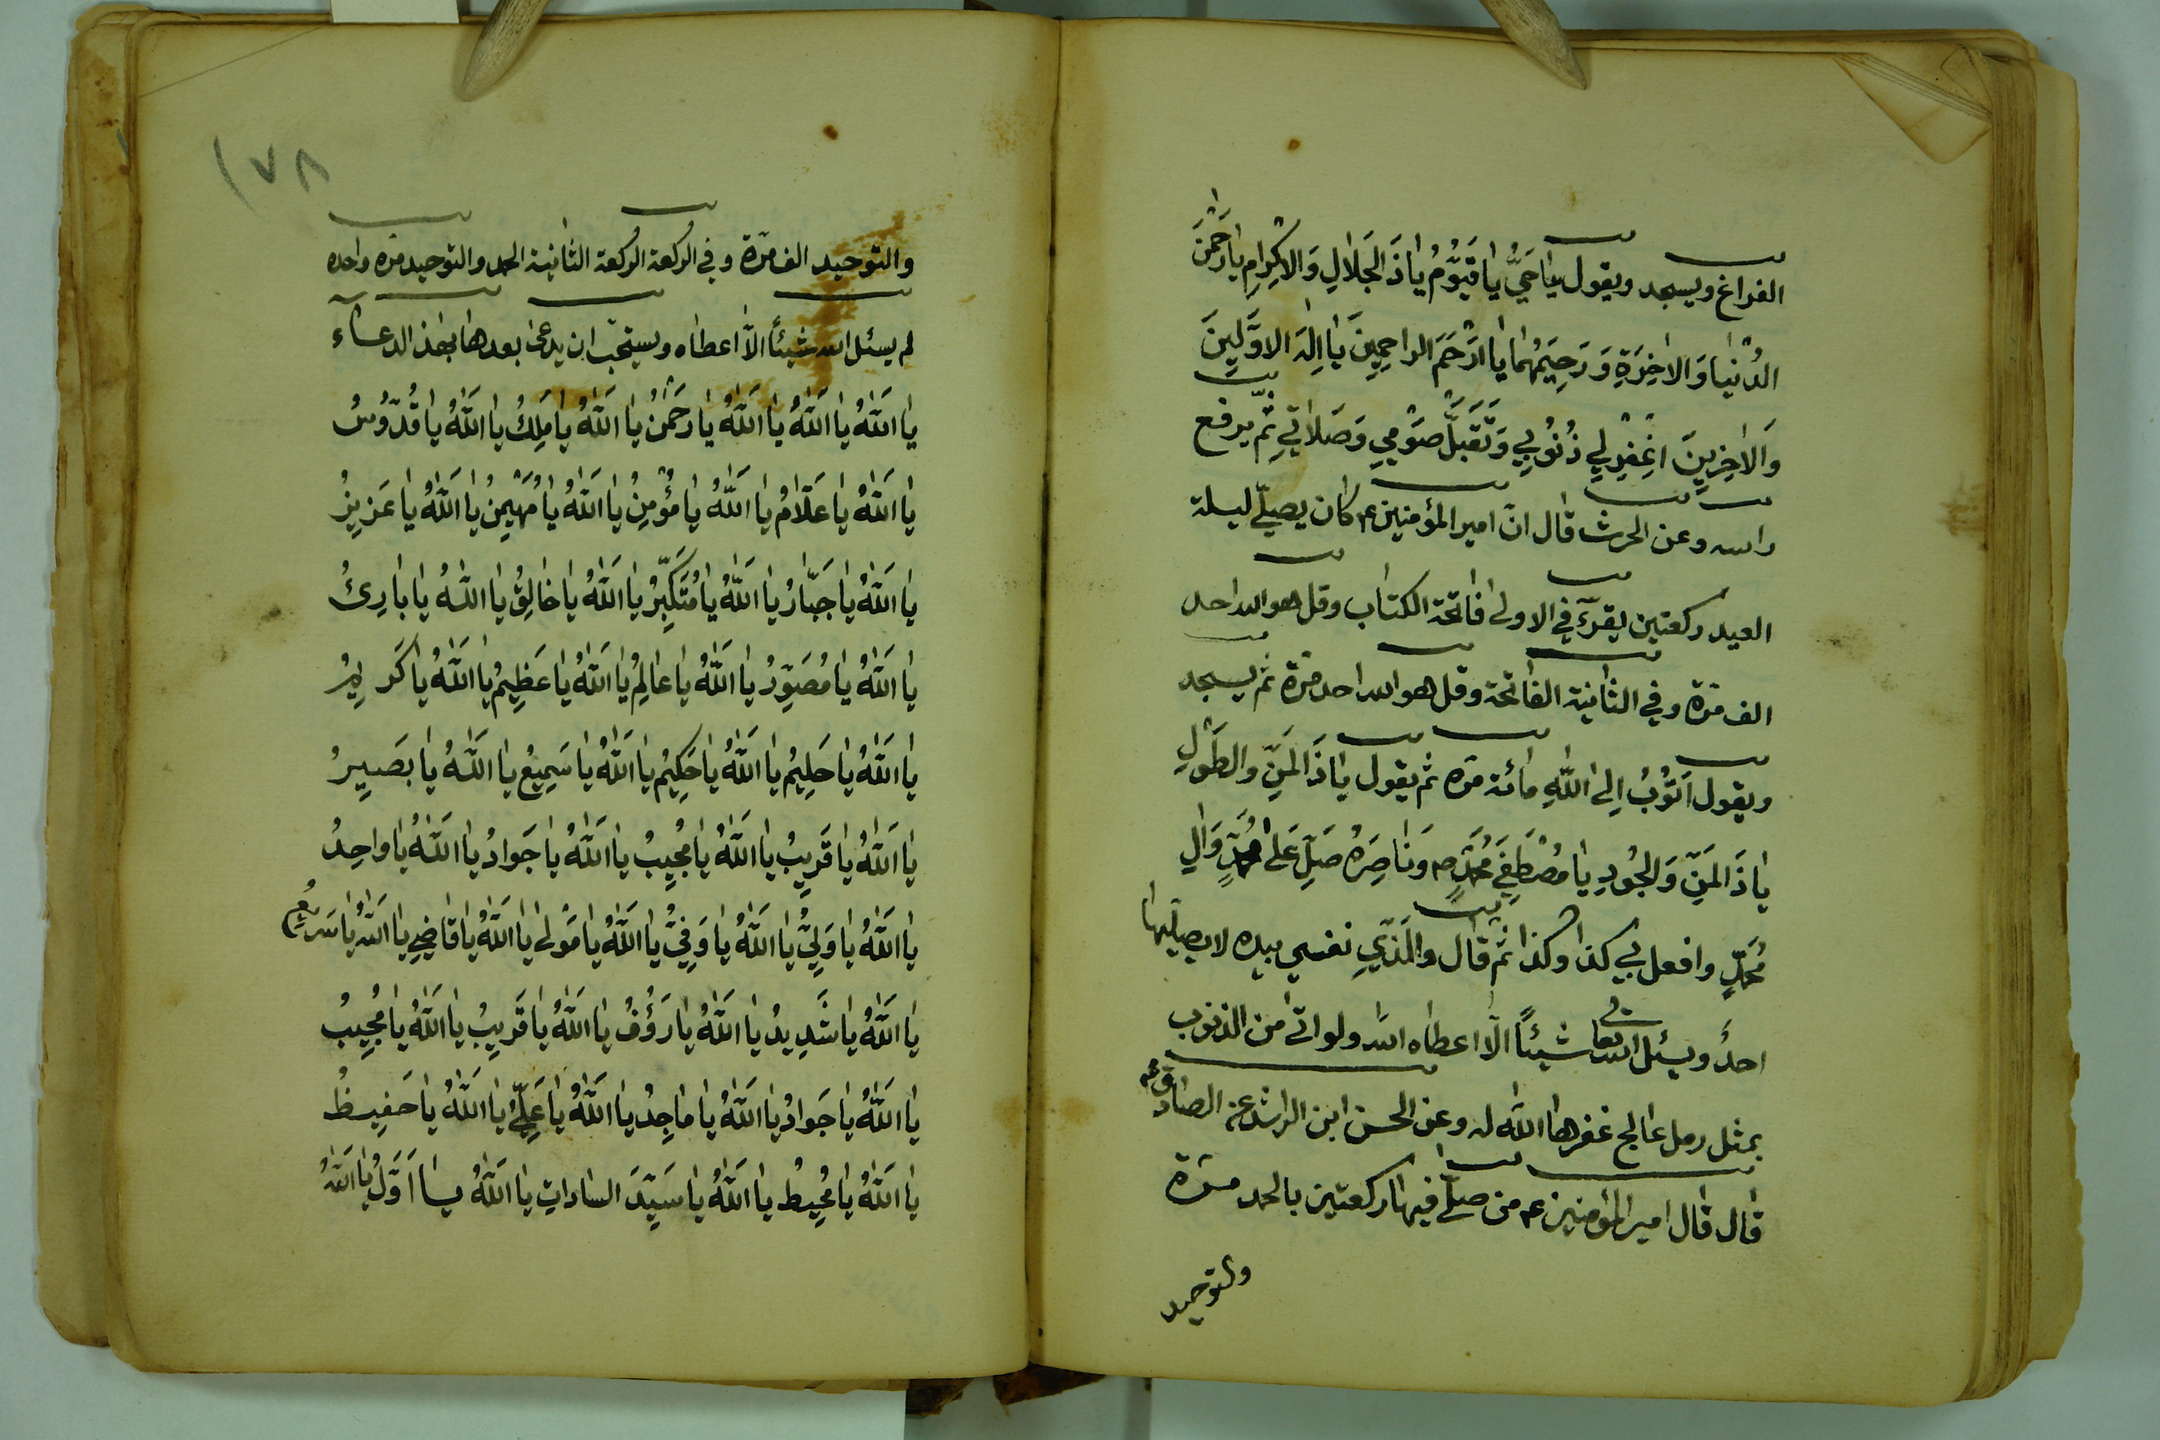 الفراغ ويسجد ويقول يا حَيُّ يا قَيُّومُ يا ذَا الجَلالِ وَالاِكْرامِ يا رَحْمنَ
الدُّنْيا وَالاخِرَةِ وَرَحِيمَهُما يا اَرْحَمَ الراحِمِينَ يا اِلهَ الاوَّلِينَ
وَالاخِرِينَ اغْفِرْ لِي ذُنُوبِي وَتَقَبَّلْ صَوْمِي وَصَلاتِي ثم يرفع
راسه وعن الحرث قال انّ امير المؤمنين ع كان يصلّي ليلة
العيد ركعتين يقرء في الاولى فاتحة الكتاب وقل هو الله احد
الف مرّة وفي الثانية الفاتحة وقل هو الله احد مرّة ثم يسجد
ويقول اَتُوْبُ اِلى اللّهِ مائة مرّه ثم يقول يا ذَا المَنِّ والطَوْلِ
يا ذَا المَنِّ وَالجُودِ يا مُصْطَفِيَ مُحَمَّدٍ ص وَناصِرَهُ صَلِّ عَلى مُحَمَّدٍ وَالِ
مُحَمَّدٍ وافعل بي كذا وكذا ثم قال والَّذي نفسي بيده لا يصلّيها
احدٌ ويسئل الله تعالى شيئًا الّا اعطاه الله ولو اتى من الذنوب
بمثل رمل عالج غفرها اللّه له وعن الحسن ابن الراشد عن الصادق ع
قال قال امير المؤمنين ع من صلّى فيها ركعتين بالحمد مرّة
والتوحيد
١٧٨
والتوحيد الف مرّة وفي الركعة الركعة الثانية الحمد والتوحيد مرّه واحده
لم يسئل الله شيئًا الّا اعطاه ويستحبّ ان يدعى بعدها بهذ الدعاء
يا اَللّهُ يا اَللّهُ يا اَللّهُ يا رَحْمنُ يا اَللّهُ يا مَلِكُ يا اَللّهُ يا قُدّوُسُ
يا اَللّهُ يا عَلّامُ يا اَللّهُ يا مُؤْمِنُ يا اَللّهُ يا مُهَيْمِنُ يا اَللّهُ يا عَزيزُ
يا اَللّهُ يا جَبّارُ يا اَللّهُ يا مُتَكَبِّرُ يا اَللّهُ يا خالِقُ يا اَللّهُ يا بارِئُ
يا اَللّهُ يا مُصَوِّرُ يا اَللّهُ يا عالِمُ يا اَللّهُ يا عَظِيمُ يا اَللّهُ يا كَريمُ
يا اَللّهُ يا حَلِيمُ يا اَللّهُ يا حَكِيمُ يا اَللّهُ يا سَمِيعُ يا اَللّهُ يا بَصيِرُ
يا اَللّهُ يا قَريِبُ يا اَللّهُ يا مُجِيبُ يا اَللّهُ يا جَوادُ يا اَللّهُ يا واحِدُ
يا اَللّهُ يا وَلِيُّ يا اَللّهُ يا وَفِيُّ يا اَللّهُ يا مَوْلى يا اَللّهُ يا قاضِي يا اَللّهُ يا سَريعُ
يا اَللّهُ يا شَديدُ يا اَللّهُ يا رَؤُفُ يا اَللّهُ يا قَريِبُ يا اَللّهُ يا مُجِيبُ
يا اَللّهُ يا جَوادُ يا اَللّهُ يا ماجِدُ يا اَللّهُ يا عَلِيُّ يا اَللّهُ يا حَفيِظُ
يا اَللّهُ يا مُحِيطُ يا اَللّهُ يا سَيِّدَ الساداتِ يا اَللّهُ يا اَوَّلُ يا اَللّهُ